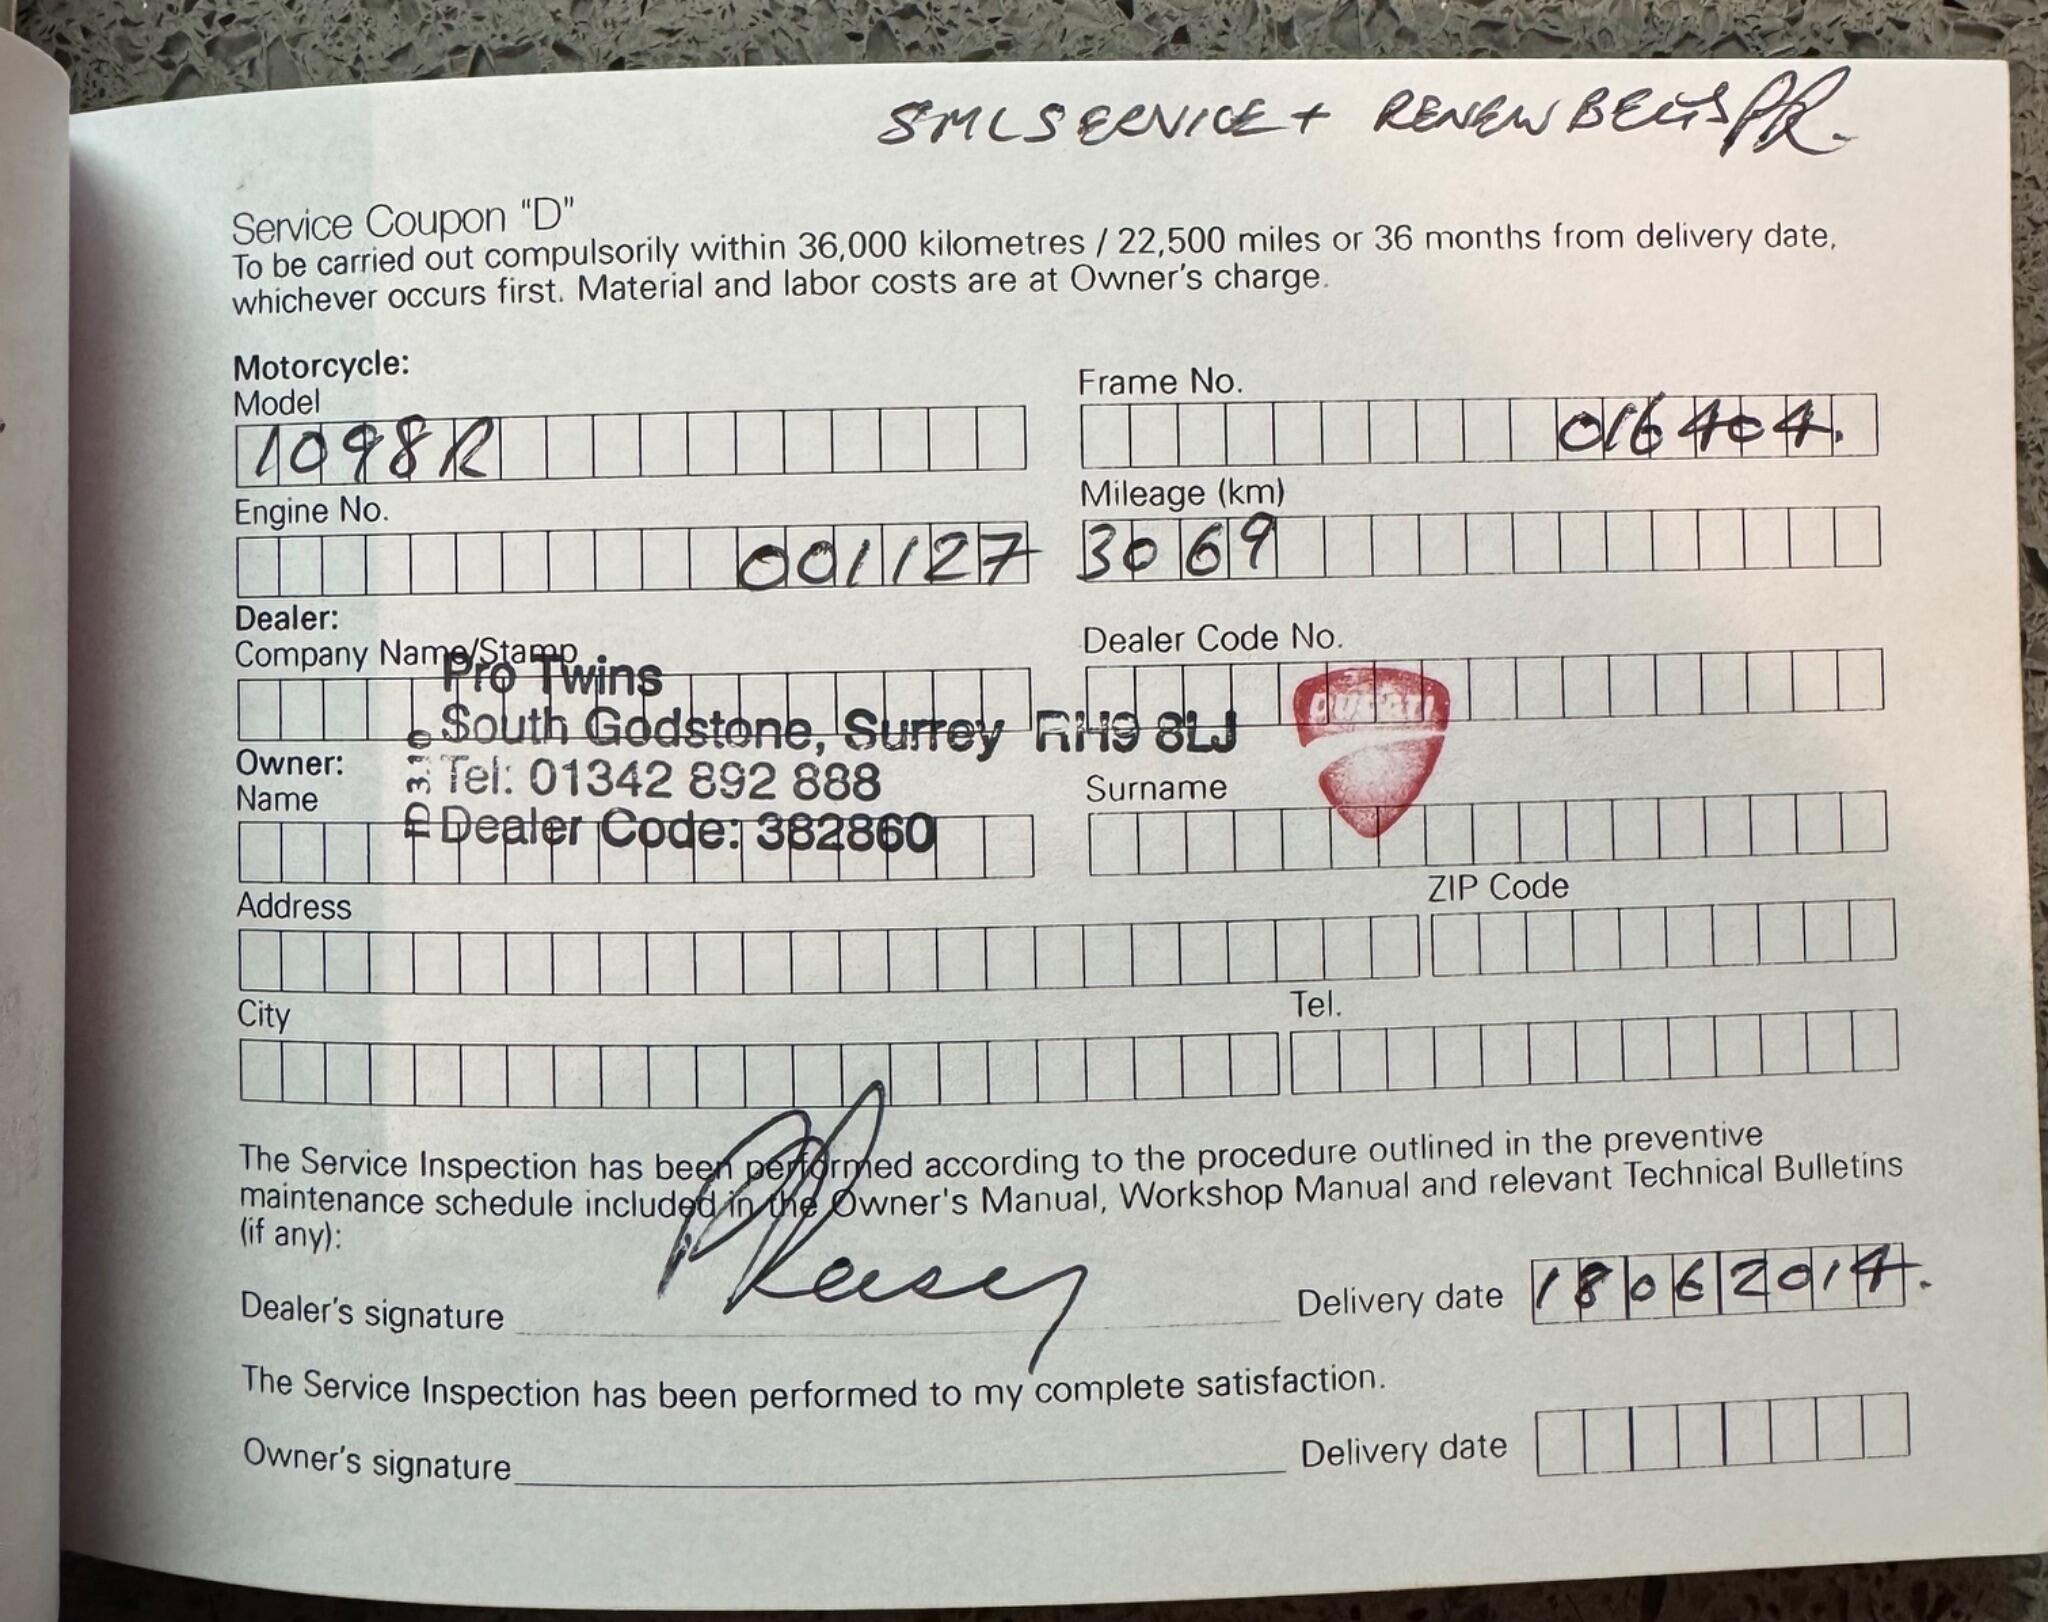 SML SERVICE + RENEW BELTS PR.
Service Coupon "D"
To be carried out compulsorily within 36,000 kilometres / 22,500 miles or 36 months from delivery date,
whichever occurs first. Material and labor costs are at Owner's charge.
Motorcycle:
Model
Frame No.
1098R
016404.
Engine No.
Mileage (km)
001127
3069
Dealer:
Company Name/Stamp
Dealer Code No.
Pro Twins
South Godstone, Surrey RH9 8LJ
DUCATI
Owner:
Tel: 01342 892 888
Name
Surname
Dealer Code: 382860
Address
ZIP Code
City
Tel.
The Service Inspection has been performed according to the procedure outlined in the preventive
maintenance schedule included in the Owner's Manual, Workshop Manual and relevant Technical Bulletins
(if any):
Dealer's signature
Delivery date 18062014.
The Service Inspection has been performed to my complete satisfaction.
Owner's signature
Delivery date